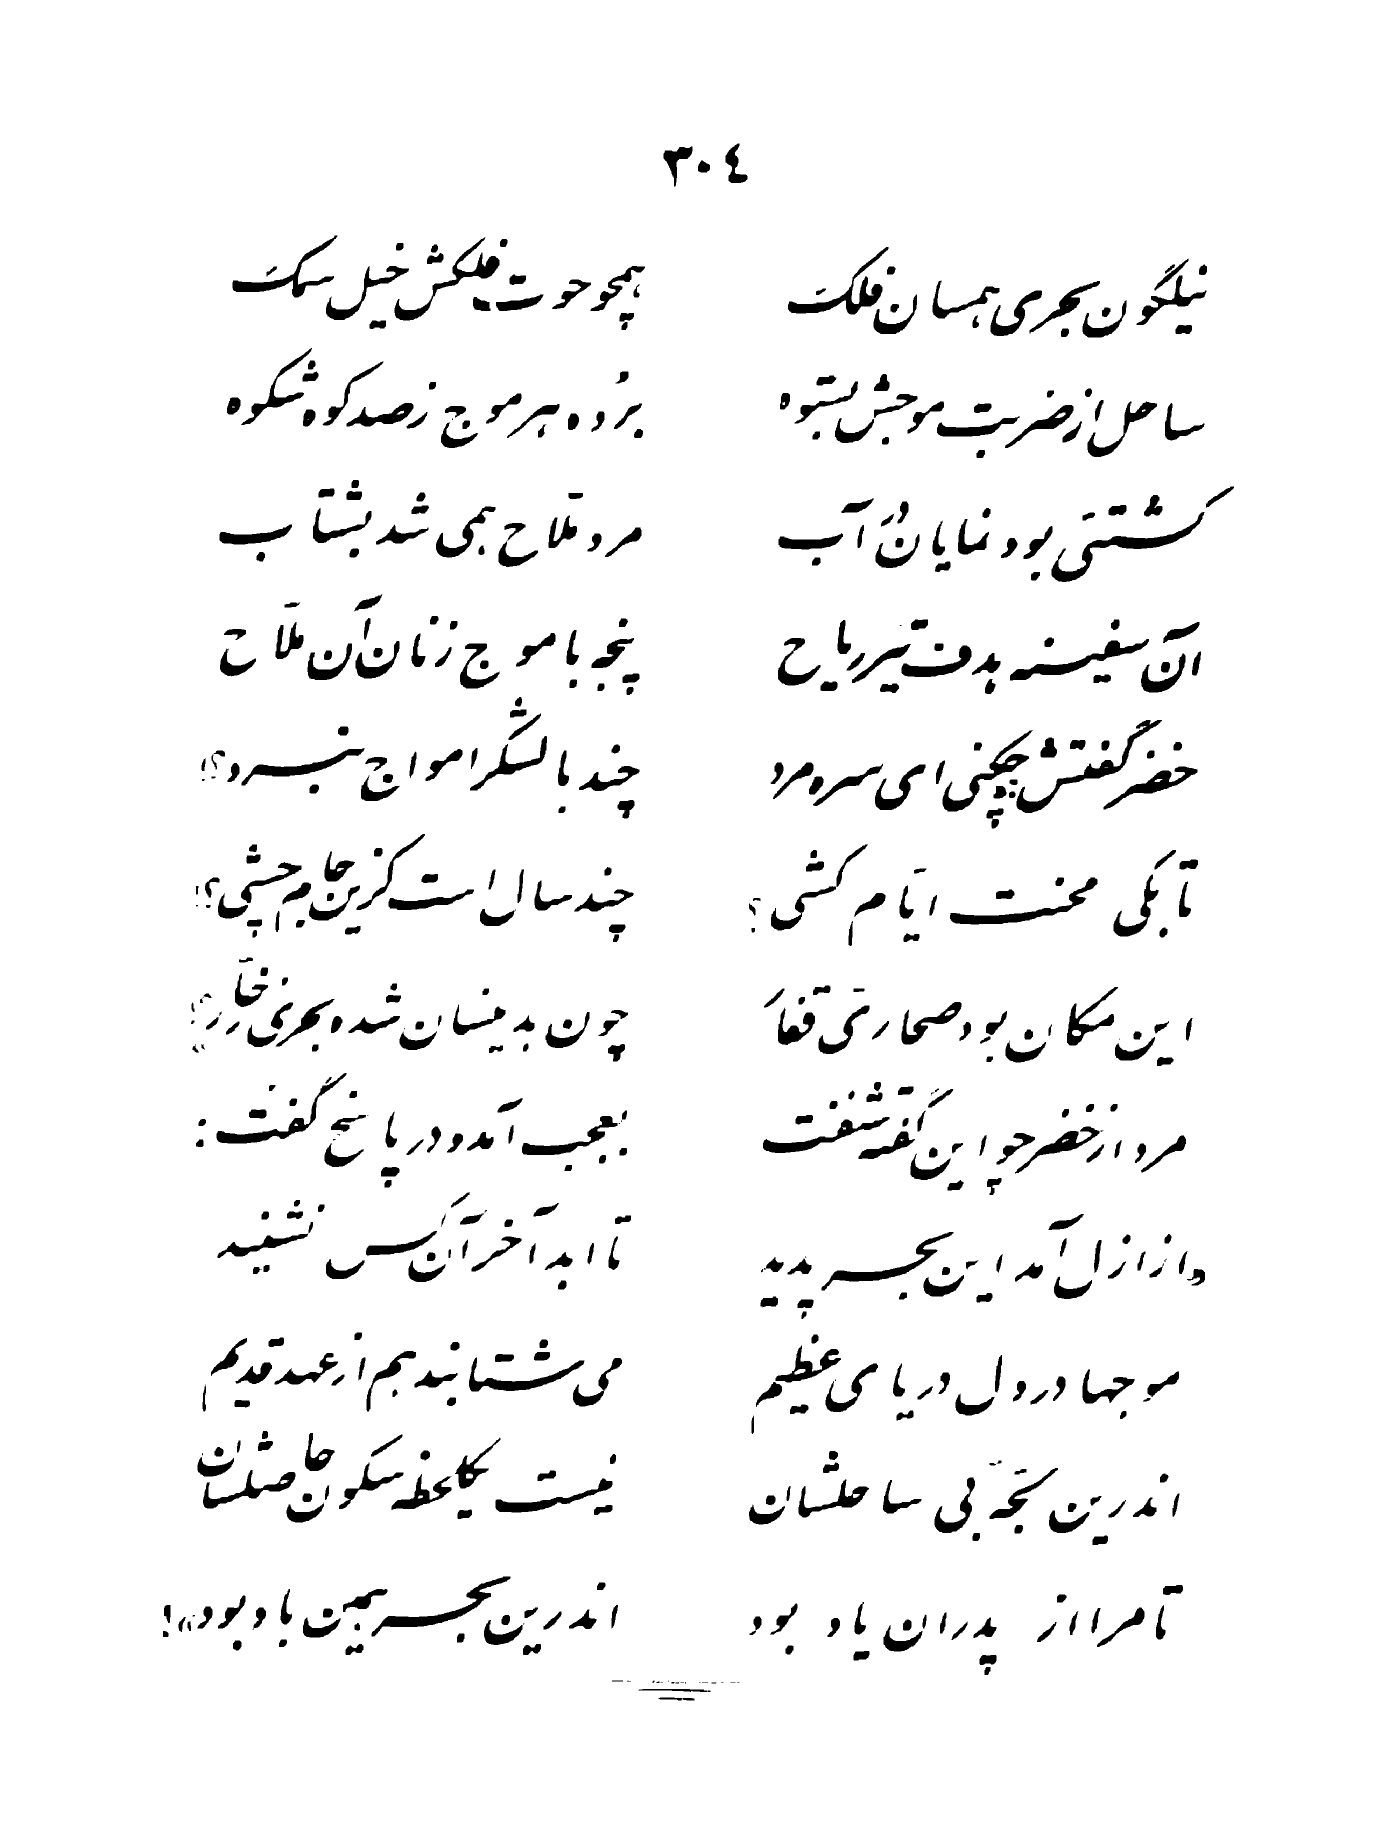 ٣٠٤
نیلگون بحری همسان فلک همچو حوت فلکش خیل سمک
ساحل از ضربت موجش بستوه برُده هر موج ز صد کوه شکوه
کشتئی بود نمایان در آب مرد ملاّح همی شد بشتاب
آن سفینه هدف تیر ریاح پنجه با موج زنان آن ملاّح
خضر گفتش چکنی ای سره مرد چند با لشکر امواج نبرد؟!
تا بکی محنت ایّام کشی؟ چند سال است کزین جام چشی؟!
این مکان بود صحاریّ قفار چون بدینسان شده بحری زخّار؟!
مرد از خضر چو این گفته شنفت بعجب آمد و در پاسخ گفت:
«از ازل آمد این بحر پدید تا ابد آخر آن کس نشنید
موجها در دل دریای عظیم می شتابند هم از عهد قدیم
اندرین لجّه بی ساحلشان نیست یکلحظه سکون حاصلشان
تا مرا از پدران یاد بود اندرین بحر همین باد بود»!